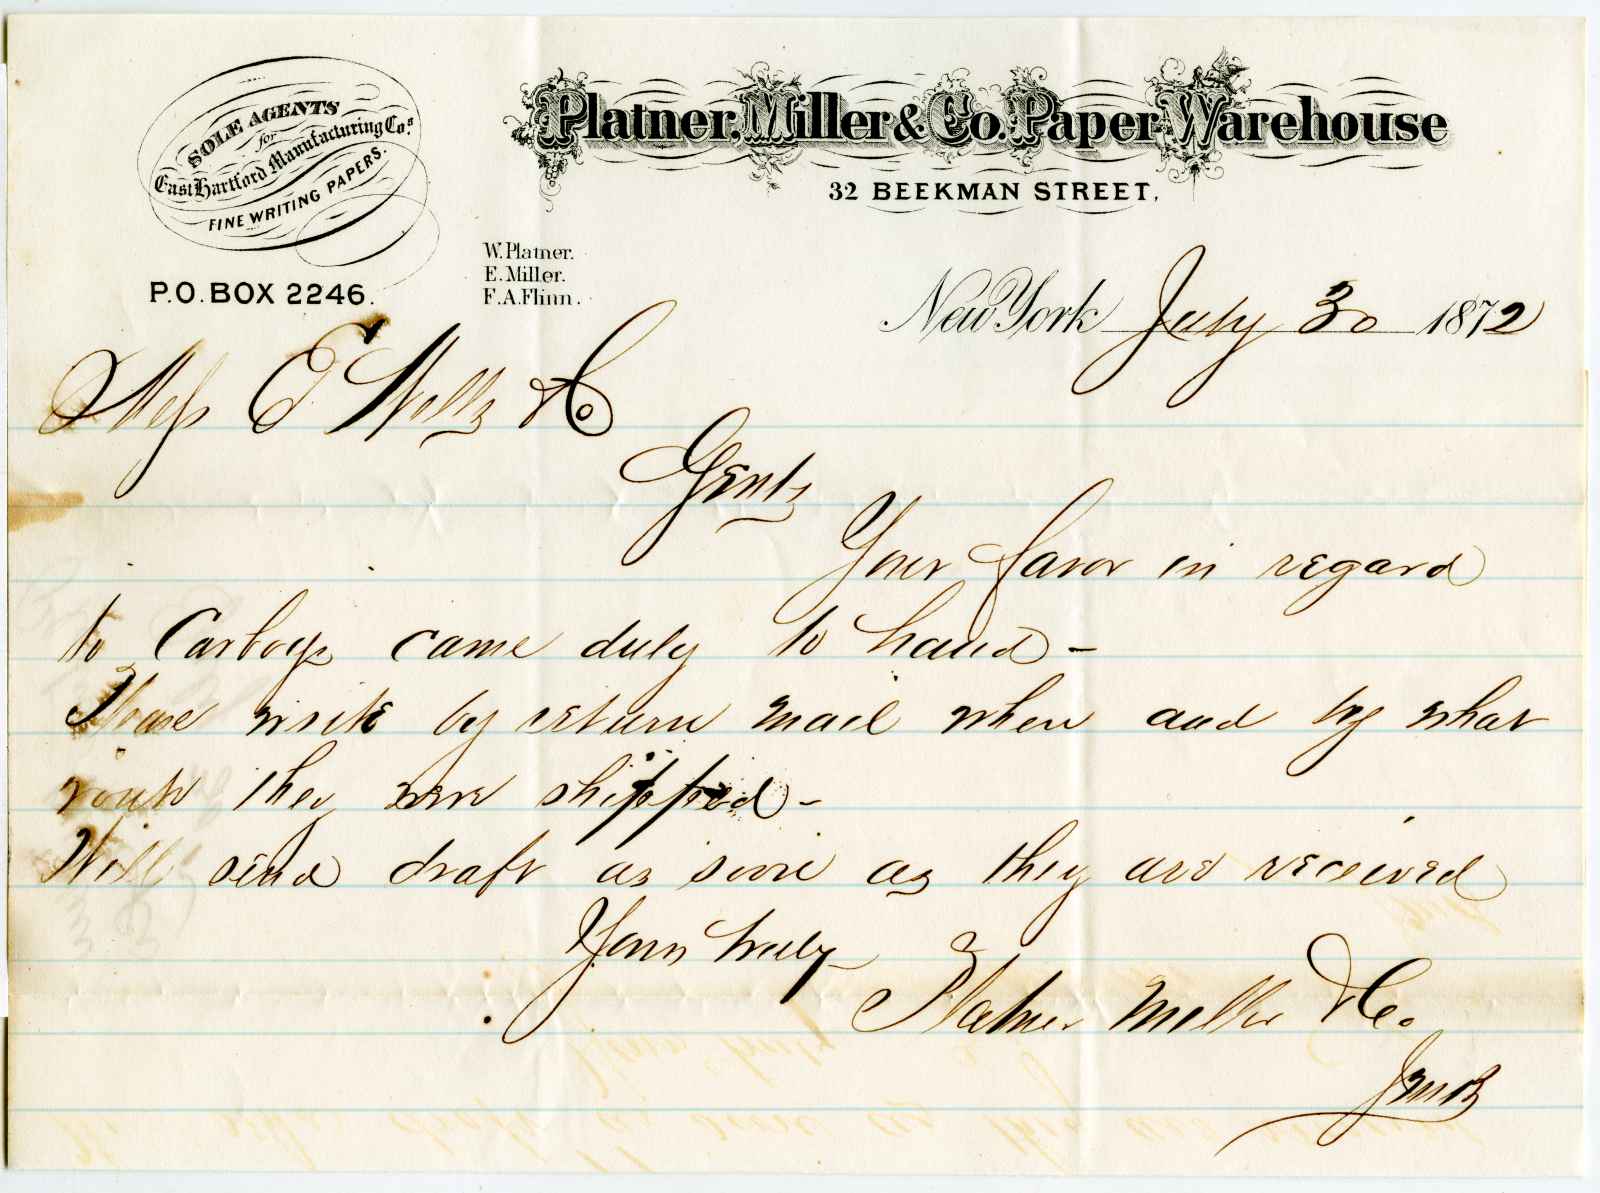 SOLE AGENTS
for
East Hartford Manufacturing Co's
FINE WRITING PAPERS.
P.O. BOX 2246.
Platner, Miller & Co. Paper Warehouse
32 BEEKMAN STREET,
W. Platner.
E. Miller.
F. A. Flinn.
New York July 30 1872
Mess E Wells & Co
Gents
Your favor in regard
to Carboys came duly to hand -
Please write by return mail when and by what
route they were shipped -
Will send draft as soon as they are received
Yours truly
Platner Miller & Co.